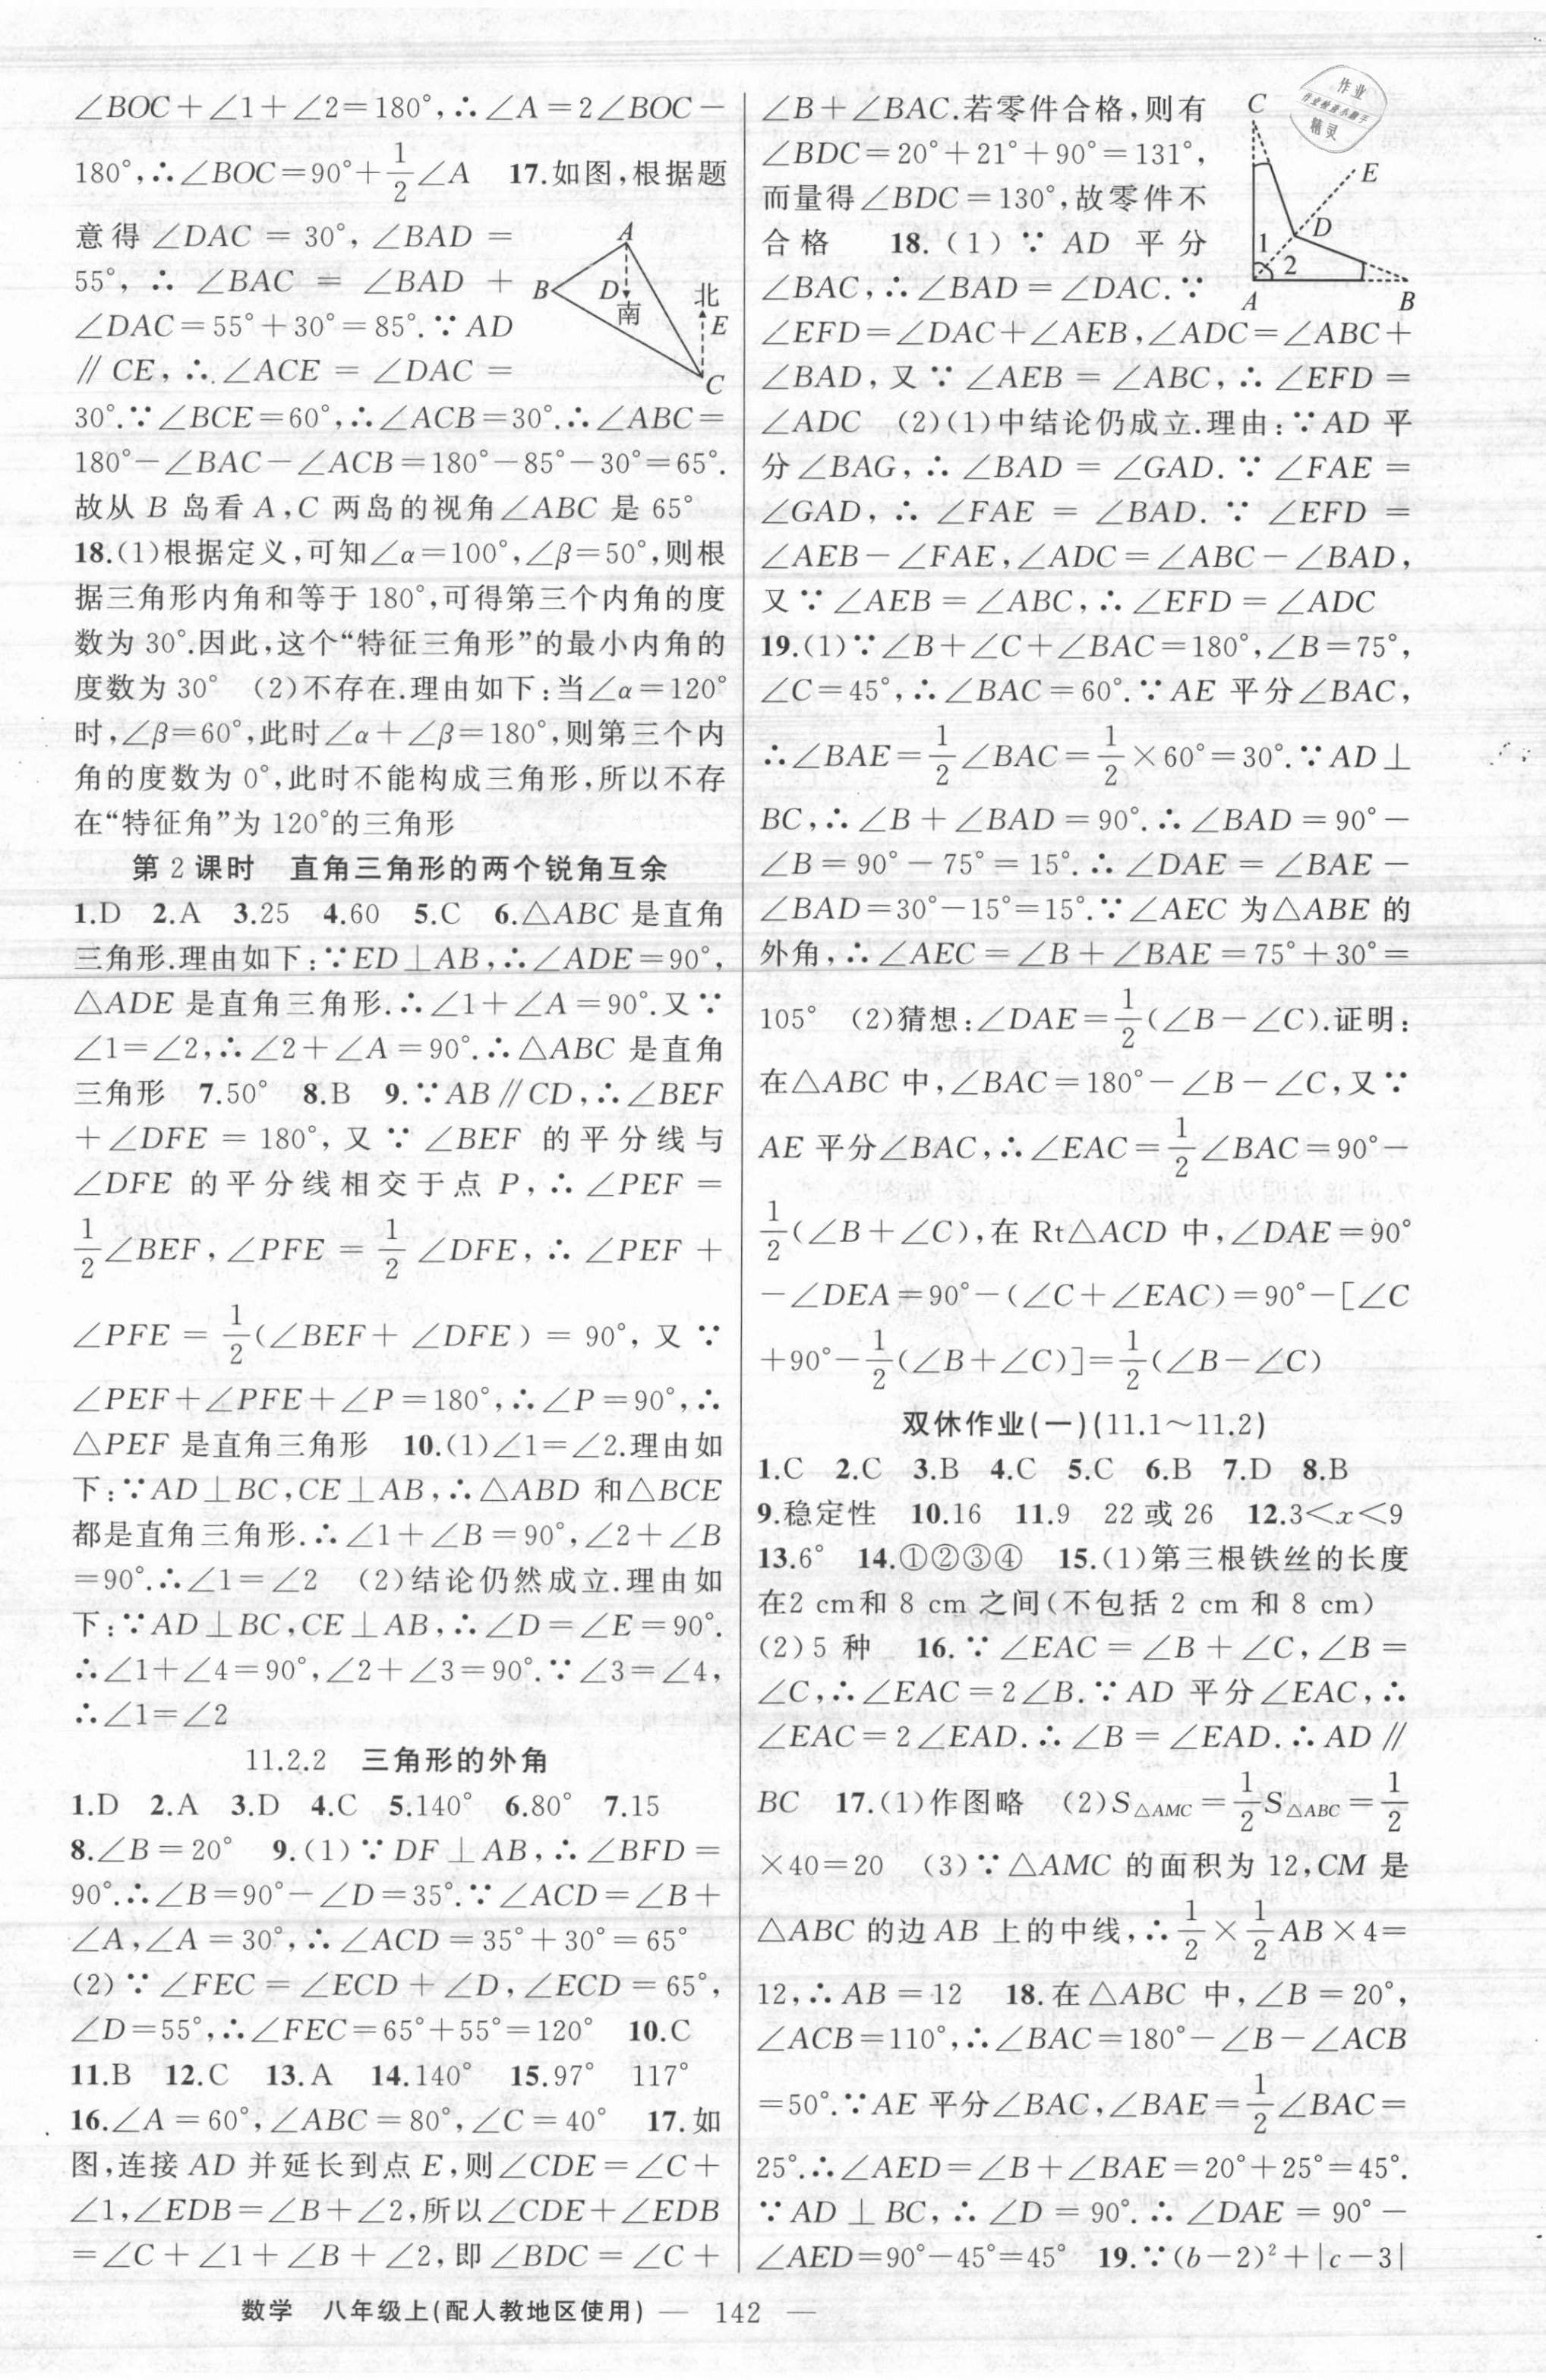 ∠BOC+∠1+∠2=180°,∴∠A=2∠BOC-
180°,∴∠BOC=90°+1/2∠A 17.如图,根据题
意得∠DAC=30°,∠BAD=
55°,∴∠BAC=∠BAD+
∠DAC=55°+30°=85°.∵AD
∥CE,∴∠ACE=∠DAC=
A
B
D
南
北
E
C
30°.∵∠BCE=60°,∴∠ACB=30°.∴∠ABC=
180°-∠BAC-∠ACB=180°-85°-30°=65°.
故从B岛看A,C两岛的视角∠ABC是65°
18.(1)根据定义,可知∠α=100°,∠β=50°,则根
据三角形内角和等于180°,可得第三个内角的度
数为30°.因此,这个“特征三角形”的最小内角的
度数为30° (2)不存在.理由如下:当∠α=120°
时,∠β=60°,此时∠α+∠β=180°,则第三个内
角的度数为0°,此时不能构成三角形,所以不存
在“特征角”为120°的三角形
第2课时 直角三角形的两个锐角互余
1.D 2.A 3.25 4.60 5.C 6.△ABC是直角
三角形.理由如下:∵ED⊥AB,∴∠ADE=90°,
△ADE是直角三角形.∴∠1+∠A=90°.又∵
∠1=∠2,∴∠2+∠A=90°.∴△ABC是直角
三角形 7.50° 8.B 9.∵AB∥CD,∴∠BEF
+∠DFE=180°,又∵∠BEF的平分线与
∠DFE的平分线相交于点P,∴∠PEF=
1/2∠BEF,∠PFE=1/2∠DFE,∴∠PEF+
∠PFE=1/2(∠BEF+∠DFE)=90°,又∵
∠PEF+∠PFE+∠P=180°,∴∠P=90°,∴
△PEF是直角三角形 10.(1)∠1=∠2.理由如
下:∵AD⊥BC,CE⊥AB,∴△ABD和△BCE
都是直角三角形.∴∠1+∠B=90°,∠2+∠B
=90°.∴∠1=∠2 (2)结论仍然成立.理由如
下:∵AD⊥BC,CE⊥AB,∴∠D=∠E=90°.
∴∠1+∠4=90°,∠2+∠3=90°.∵∠3=∠4,
∴∠1=∠2
11.2.2 三角形的外角
1.D 2.A 3.D 4.C 5.140° 6.80° 7.15
8.∠B=20° 9.(1)∵DF⊥AB,∴∠BFD=
90°.∴∠B=90°-∠D=35°.∵∠ACD=∠B+
∠A,∠A=30°,∴∠ACD=35°+30°=65°
(2)∵∠FEC=∠ECD+∠D,∠ECD=65°,
∠D=55°,∴∠FEC=65°+55°=120° 10.C
11.B 12.C 13.A 14.140° 15.97° 117°
16.∠A=60°,∠ABC=80°,∠C=40° 17.如
图,连接AD并延长到点E,则∠CDE=∠C+
∠1,∠EDB=∠B+∠2,所以∠CDE+∠EDB
=∠C+∠1+∠B+∠2,即∠BDC=∠C+
∠B+∠BAC.若零件合格,则有
∠BDC=20°+21°+90°=131°,
而量得∠BDC=130°,故零件不
合格 18.(1)∵AD平分
∠BAC,∴∠BAD=∠DAC.∵
作业
精灵
C
E
D
1
2
A
B
∠EFD=∠DAC+∠AEB,∠ADC=∠ABC+
∠BAD,又∵∠AEB=∠ABC,∴∠EFD=
∠ADC (2)(1)中结论仍成立.理由:∵AD平
分∠BAG,∴∠BAD=∠GAD.∵∠FAE=
∠GAD,∴∠FAE=∠BAD.∵∠EFD=
∠AEB-∠FAE,∠ADC=∠ABC-∠BAD,
又∵∠AEB=∠ABC,∴∠EFD=∠ADC
19.(1)∵∠B+∠C+∠BAC=180°,∠B=75°,
∠C=45°,∴∠BAC=60°.∵AE平分∠BAC,
∴∠BAE=1/2∠BAC=1/2×60°=30°.∵AD⊥
BC,∴∠B+∠BAD=90°.∴∠BAD=90°-
∠B=90°-75°=15°.∴∠DAE=∠BAE-
∠BAD=30°-15°=15°.∵∠AEC为△ABE的
外角,∴∠AEC=∠B+∠BAE=75°+30°=
105° (2)猜想:∠DAE=1/2(∠B-∠C).证明:
在△ABC中,∠BAC=180°-∠B-∠C,又∵
AE平分∠BAC,∴∠EAC=1/2∠BAC=90°-
1/2(∠B+∠C),在Rt△ACD中,∠DAE=90°
-∠DEA=90°-(∠C+∠EAC)=90°-[∠C
+90°-1/2(∠B+∠C)]=1/2(∠B-∠C)
双休作业(一)(11.1～11.2)
1.C 2.C 3.B 4.C 5.C 6.B 7.D 8.B
9.稳定性 10.16 11.9 22或26 12.3<x<9
13.6° 14.①②③④ 15.(1)第三根铁丝的长度
在2 cm和8 cm之间(不包括2 cm和8 cm)
(2)5种 16.∵∠EAC=∠B+∠C,∠B=
∠C,∴∠EAC=2∠B.∵AD平分∠EAC,∴
∠EAC=2∠EAD.∴∠B=∠EAD.∴AD∥
BC 17.(1)作图略 (2)S△AMC=1/2S△ABC=1/2
×40=20 (3)∵△AMC的面积为12,CM是
△ABC的边AB上的中线,∴1/2×1/2AB×4=
12,∴AB=12 18.在△ABC中,∠B=20°,
∠ACB=110°,∴∠BAC=180°-∠B-∠ACB
=50°.∵AE平分∠BAC,∠BAE=1/2∠BAC=
25°.∴∠AED=∠B+∠BAE=20°+25°=45°.
∵AD⊥BC,∴∠D=90°.∴∠DAE=90°-
∠AED=90°-45°=45° 19.∵(b-2)²+|c-3|
数学 八年级上(配人教地区使用) — 142 —